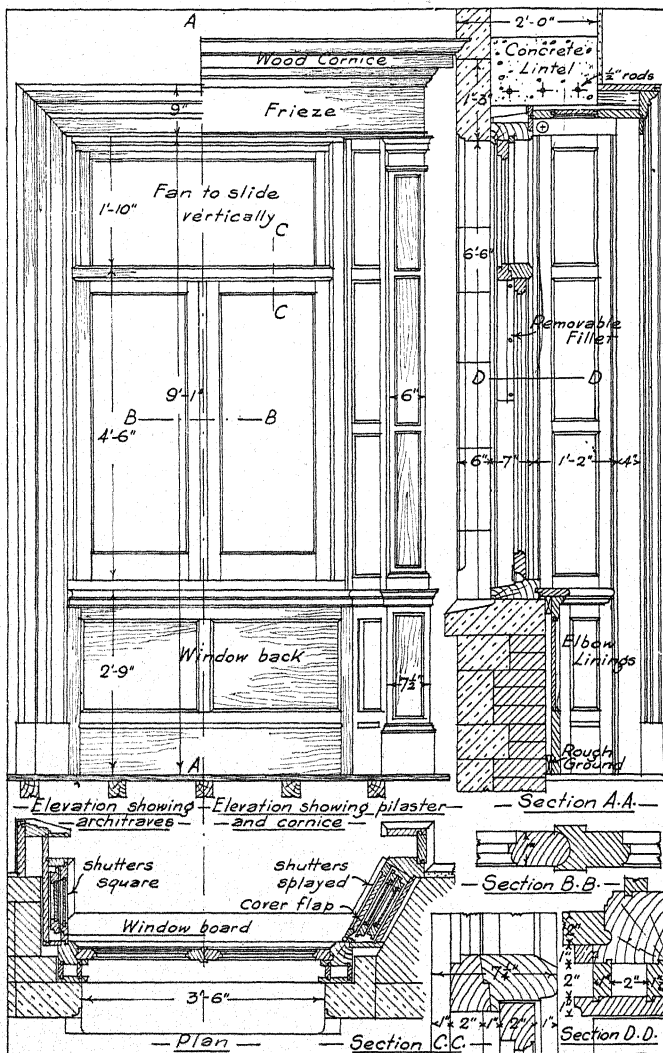 A
2'-0"
Wood Cornice
Concrete
Lintel
½" rods
9"
Frieze
1'-3"
Fan to slide
vertically
1'-10"
C
6'-6"
C
Removable
Fillet
D D
B 9'-1" B
6"
4'-6"
6" 7" 1'-2" 4"
Window back
2'-9"
7½"
Elbow
Linings
Rough
Ground
A
Elevation showing
architraves
Elevation showing pilaster
and cornice
Section A.A.
Shutters
square
Shutters
splayed
Cover flap
Window board
3'-6"
Plan
Section B.B.
1" 2" 1" 2" 1"
Section C.C.
2"
1"
2"
2"
Section D.D.